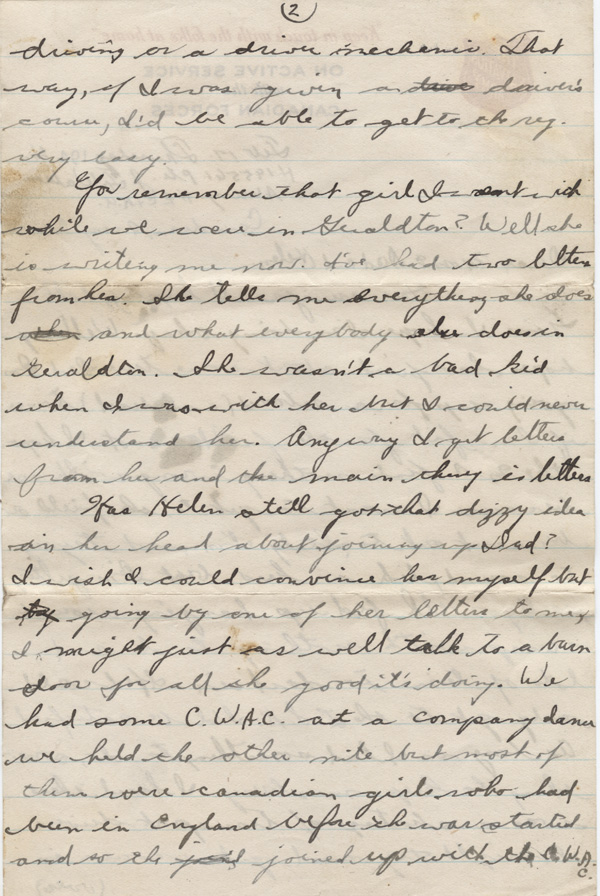 (2)
driving or a driver mechanic. That
way, if I was given a drive driver's
course, I'd be able to get to the reg.
very easy.
You remember that girl I went with
while we were in Geraldton? Well she
is writing me now. I've had two letters
from her. She tells me everything she does
when and what everybody else does in
Geraldton. She wasn't a bad kid
when I was with her but I could never
understand her. Anyway I get letters
from her and the main thing is letters
Has Helen still got that dizzy idea
in her head about joining up Dad?
I wish I could convince her myself but
by going by one of her letters to me,
I might just as well talk to a barn
door for all the good it's doing. We
had some C.W.A.C. at a company dance
we held the other nite but most of
them were canadian girls who had
been in England before the war started
and so the joined up with the C.W.A.C.